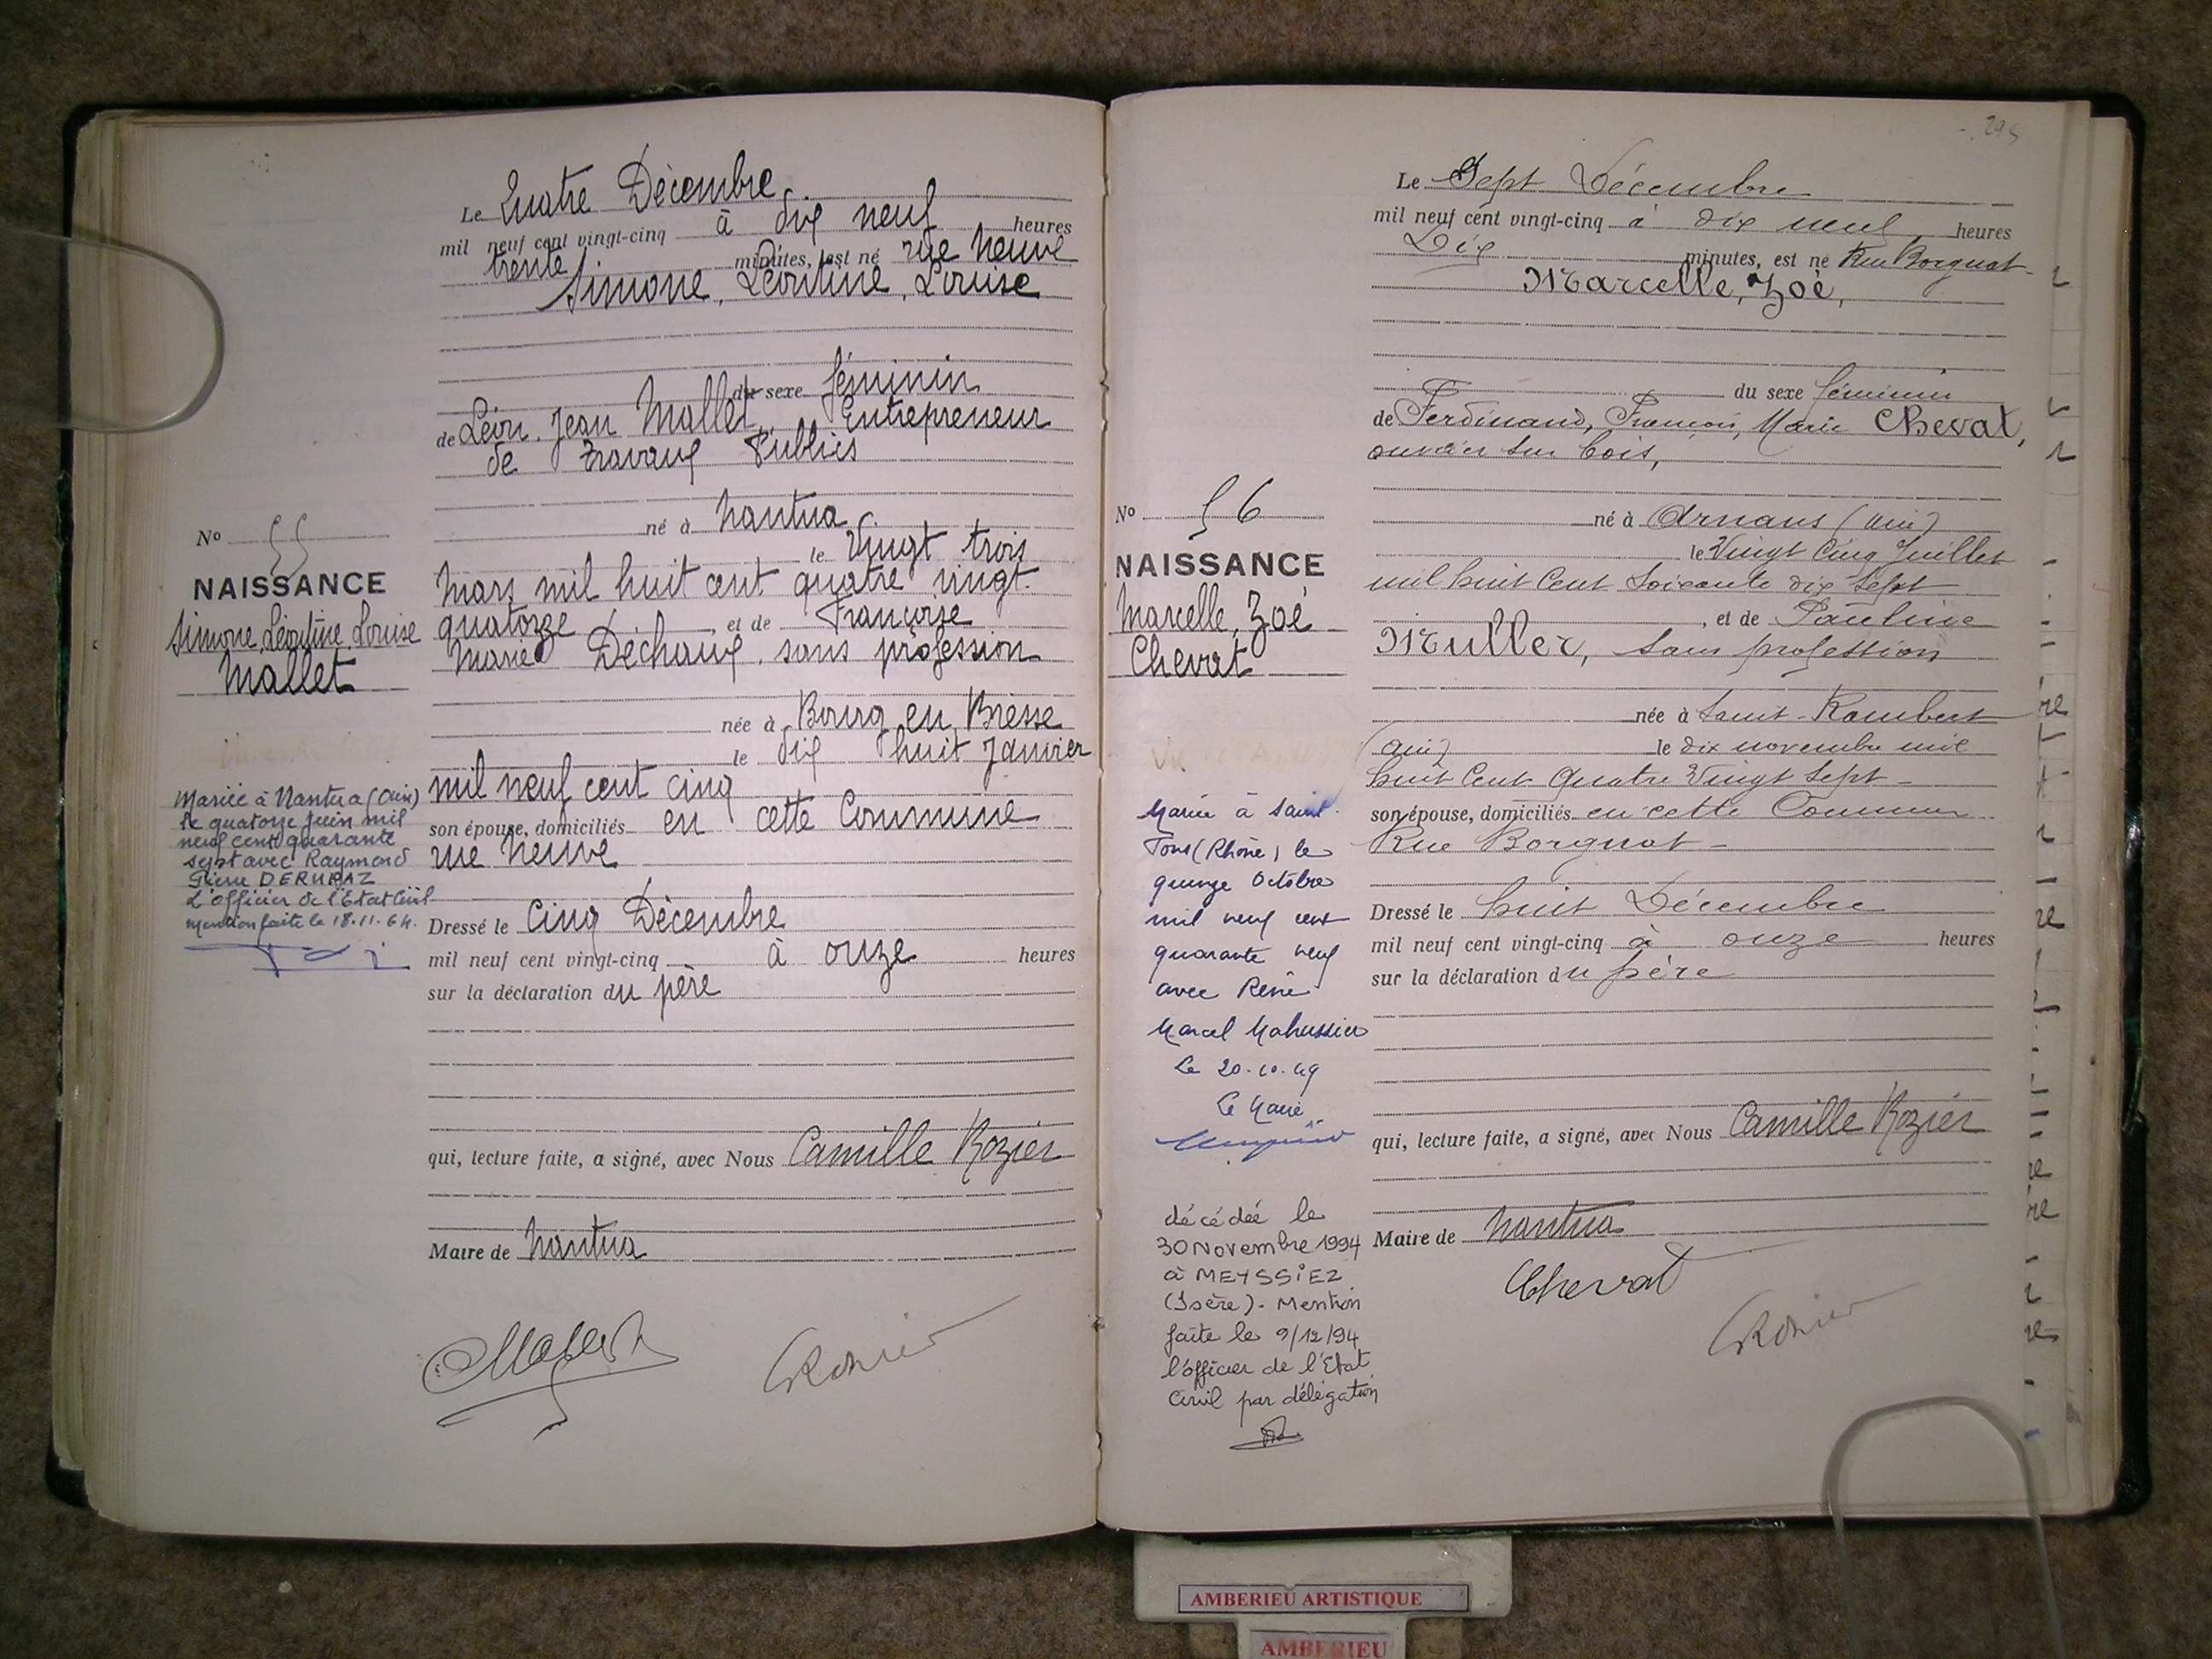 Le Quatre Décembre
mil neuf cent vingt-cinq à dix neuf heures
trente minutes, est né rue Neuve
Simone, Léontine, Louise
du sexe féminin
de Léon, Jean Mallet, Entrepreneur
de Travaux Publics
né à Nantua
le Vingt trois
Mars mil huit cent quatre vingt
quatorze, et de Françoise
Marie Déchaux, sans profession
née à Bourg en Bresse
le dix huit Janvier
mil neuf cent cinq
son épouse, domiciliés en cette Commune
rue Neuve
Dressé le Cinq Décembre
mil neuf cent vingt-cinq à onze heures
sur la déclaration du père
qui, lecture faite, a signé, avec Nous Camille Rozier
Maire de Nantua
No 55
NAISSANCE
Simone, Léontine, Louise
Mallet
Mariée à Nantua (Ain)
le quatorze juin mil
neuf cent quarante
sept avec Raymond
Pierre DERURAZ
L'officier de l'Etat Civil
mention faite le 18.11.64.
295
Le Sept Décembre
mil neuf cent vingt-cinq à dix neuf heures
Dix minutes, est né Rue Borgnat
Marcelle, Zoé,
du sexe féminin
de Ferdinand, François, Marie Chevat,
ouvrier sur bois,
né à Arnans (Ain)
le Vingt Cinq Juillet
mil huit Cent Soixante dix Sept
, et de Pauline
Muller, sans profession
née à Saint-Rambert
(Ain) le dix novembre mil
huit Cent Quatre Vingt Sept
son épouse, domiciliés en cette Commune
Rue Borgnat
Dressé le huit Décembre
mil neuf cent vingt-cinq à onze heures
sur la déclaration du père
qui, lecture faite, a signé, avec Nous Camille Rozier
Maire de Nantua
Chevat
CRozier
No 56
NAISSANCE
Marcelle, Zoé
Chevat
Mariée à Saint
Fons (Rhône) le
quinze Octobre
mil neuf cent
quarante neuf
avec René
Marcel Mahussier
Le 20.10.49
Le Maire
décédée le
30 Novembre 1994
à MEYSSIEZ
(Isère). Mention
faite le 9/12/94
l'officier de l'Etat
Civil par délégation
AMBERIEU ARTISTIQUE
AMBERIEU